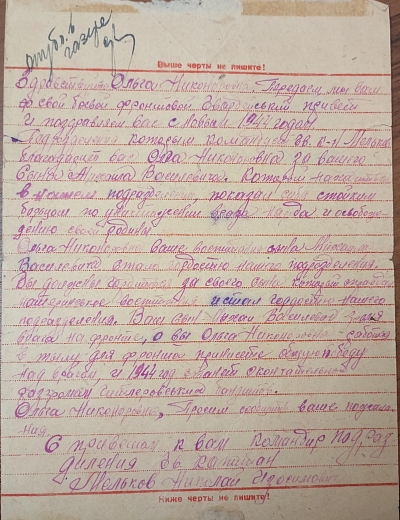 опубл. в
газете
Выше черты не пишите!
Здравствуйте Ольга Никоноровна. Передаем мы вам
свой боевой фронтовой Гвардейский привет
и поздравляем вас с Новым 1944 годом.
Подразделение которым командует гв. к-н Мельков
благодарит вас Ольга Никоноровна за вашего
сына Михаила Васильевича. Который находится
в нашем подразделении, показал себя стойким
борцом по уничтожению врага и освобождению
дению своей родины.
Ольга Никоноровна Ваше воспитание сына Михаила
Васильевича стало гордостью нашего подразделения.
Вы должны гордиться за своего сына который оправдал
материнское воспитание и стал гордостью нашего
подразделения. Ваш сын Михаил Васильевич
врага на фронте, а вы Ольга Никоноровна
в тылу для фронта победу
над врагом и 1944 год станет окончательно
гитлеровских бандитов.
Ольга Никоноровна, Просим ваше
ния
С приветом к вам командир подраз
деления гв. капитан
Мельков Николай
Ниже черты не пишите!